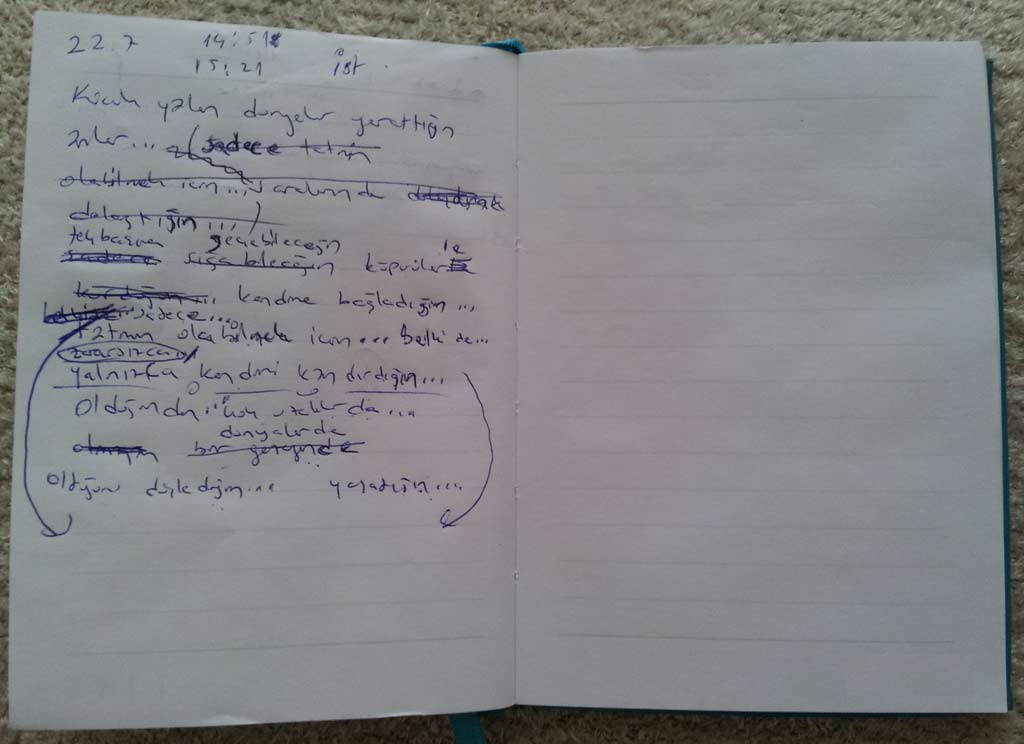 22.7 14:51
15:21 ist.
Küçük yalan dünyalar yarattığın
anlar... (sadece tatmin
olabilmek için...) aralarında
dolaştığın...)
tek başına geçebileceğin
sadece sığabileceğin köprülerle
kendine bağladığın...
sadece...
tatmin olabilmek için... Belki de...
zararsızca
yalnızca kendini kandırdığın...
Olduğundan uzaklarda...
dünyalarda
bir yerinde
Olduğunu düşlediğin... yarattığın...